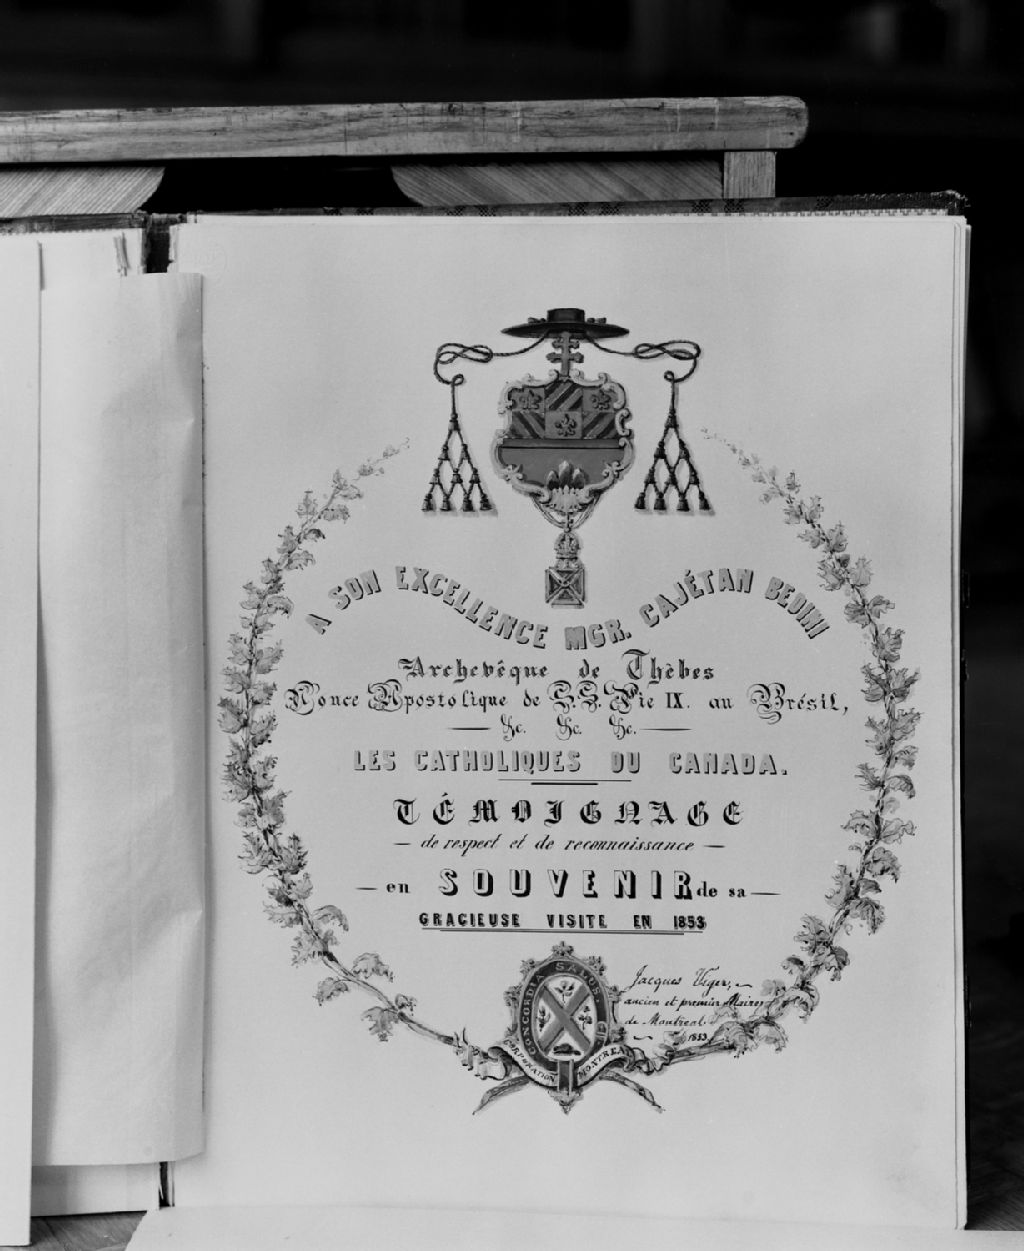 A SON EXCELLENCE MGR. CAJÉTAN BEDINI
Archevêque de Thèbes
Nonce Apostolique de S.S. Pie IX. au Brésil,
&c. &c. &c.
LES CATHOLIQUES DU CANADA.
TÉMOIGNAGE
de respect et de reconnaissance
en SOUVENIR de sa
GRACIEUSE VISITE EN 1853
Jacques Viger,
ancien et premier Maire
de Montreal.
1853
CONCORDIA SALUS.
CORPORATION MONTREAL